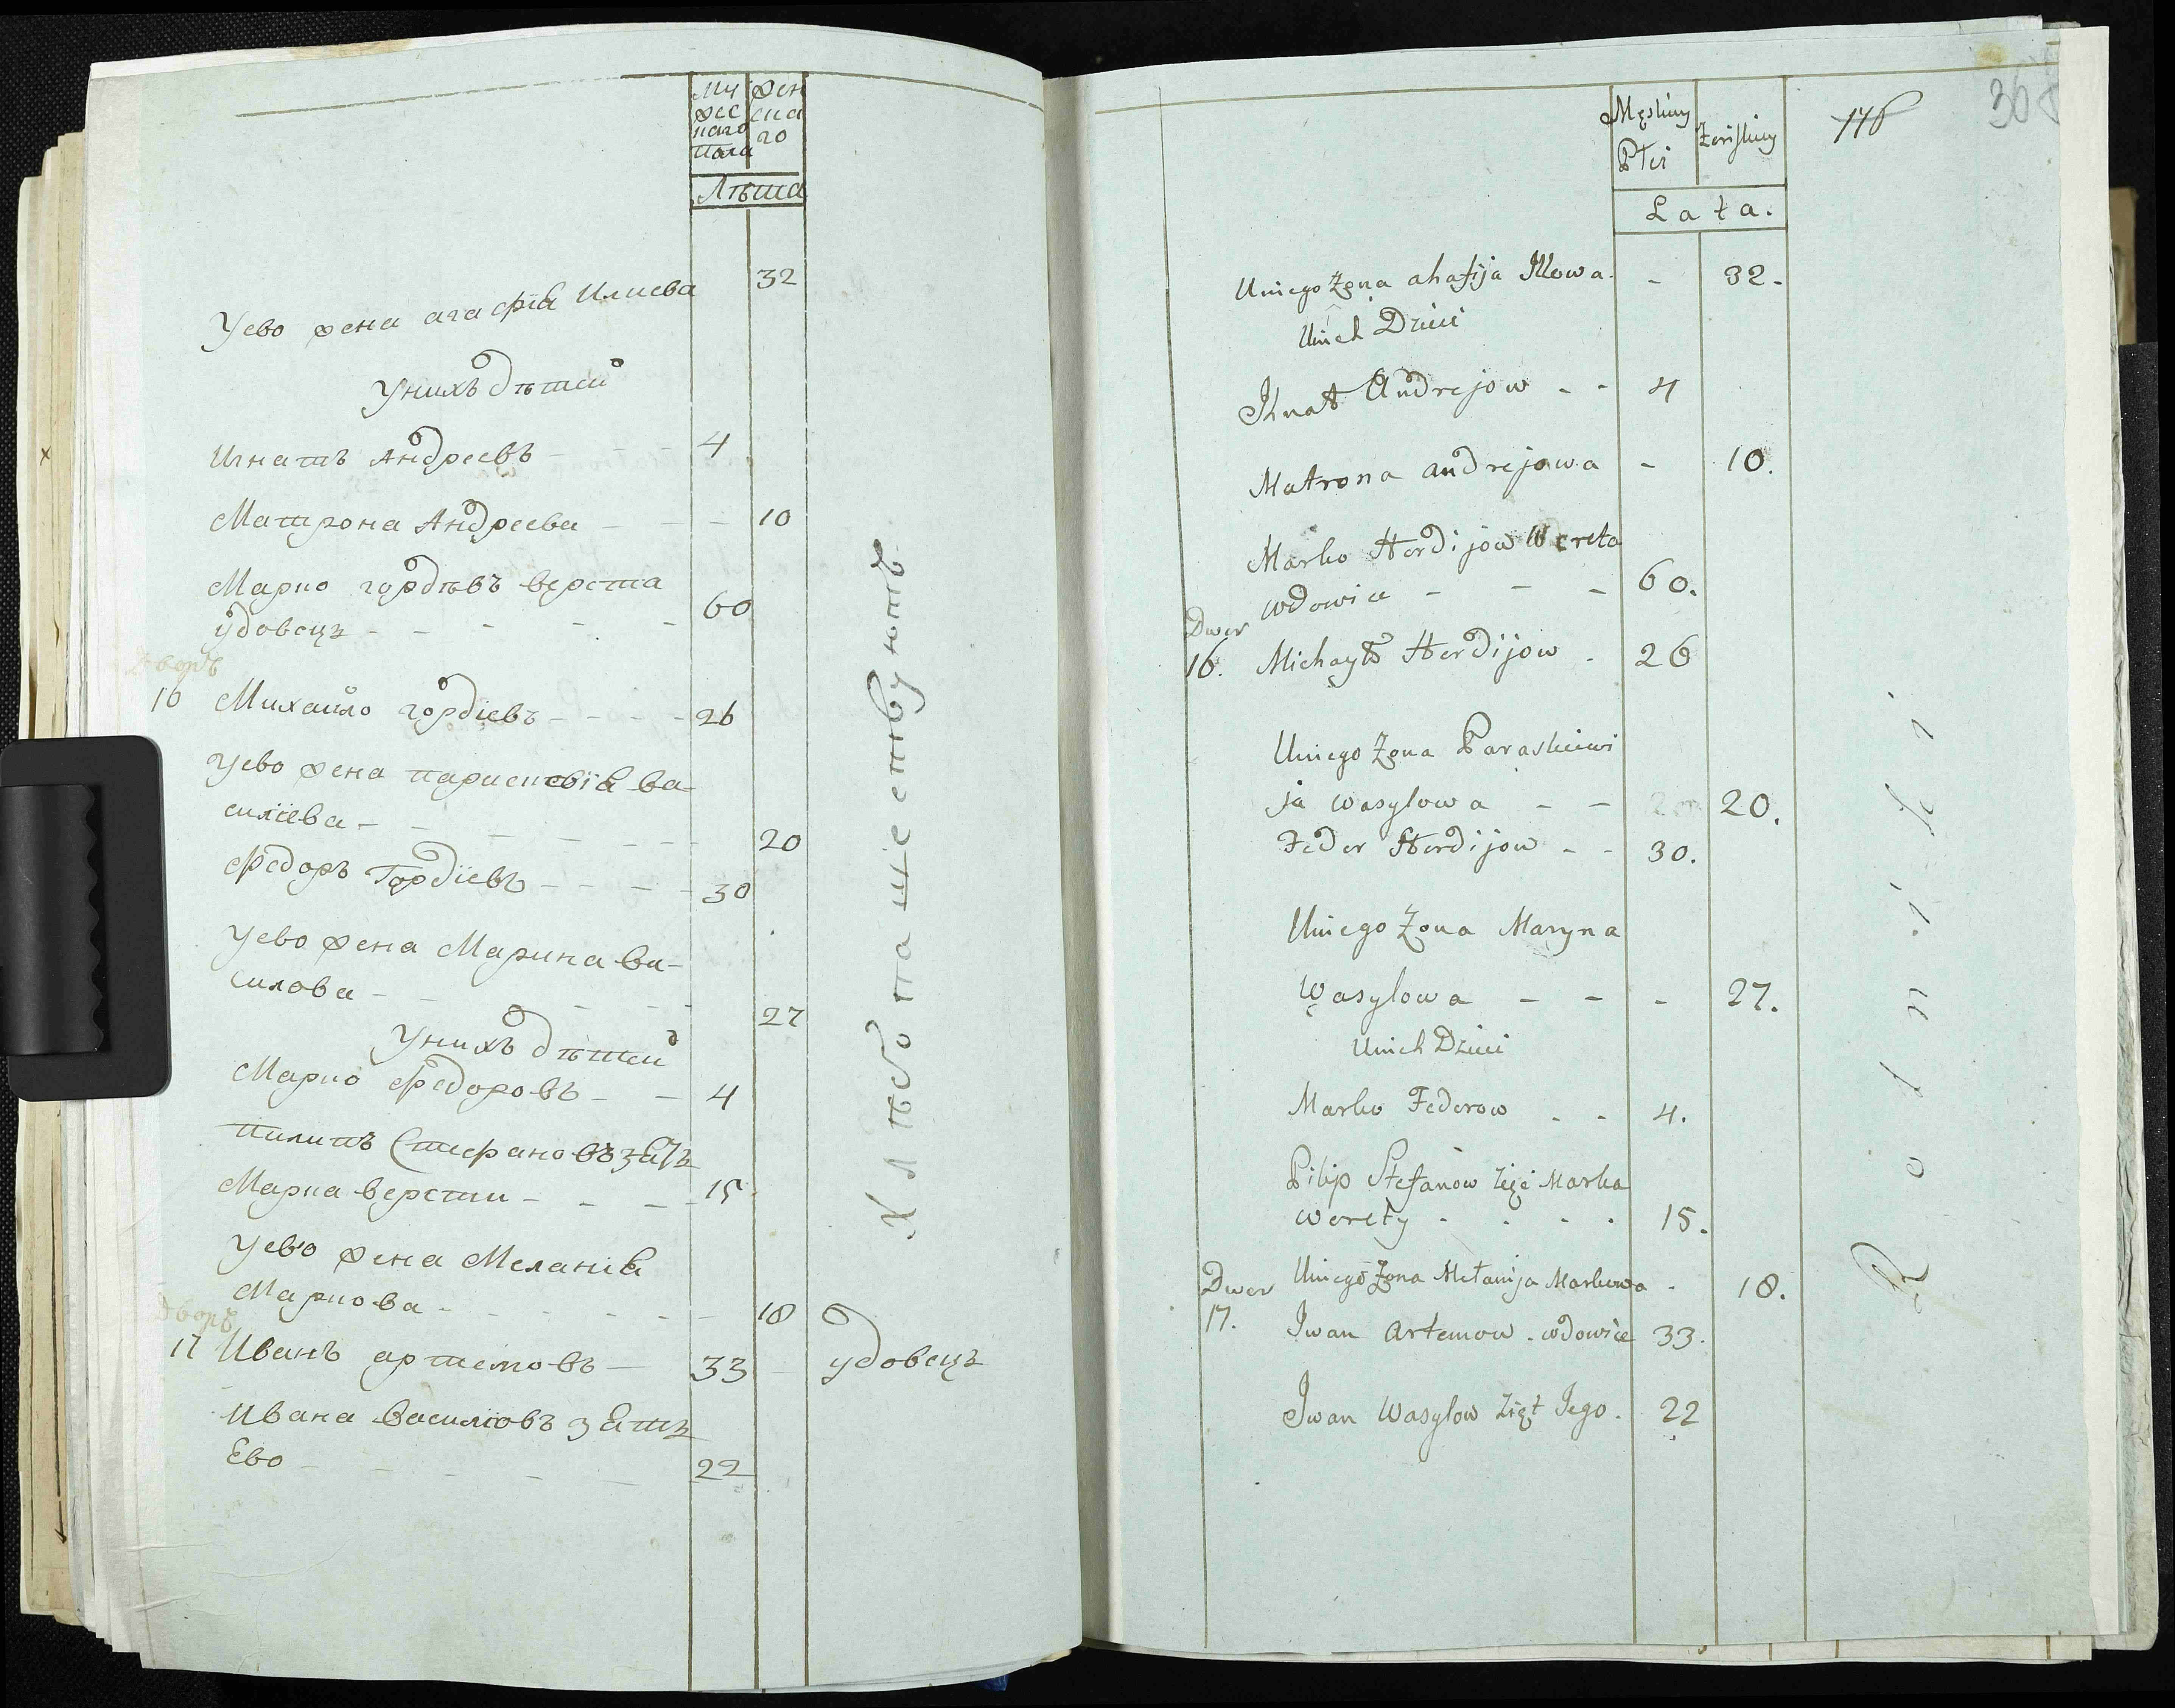 Му
жес
каго
пола
жен
ска
го
Лѣта
Уево жена агафія Илиева 32
Унихъ дѣтей
Игнатъ Андреевъ - - - 4
Матрона Андреева - - - 10
Марко гордѣвъ верета
удовецъ - - - - - 60
Дворъ
16 Михайло гордіевъ - - - - 26
Уево жена парасковія ва-
силіева - - - - - - 20
Федоръ Гордіевъ - - - - 30
Уево жена Марина ва-
силова - - - - - 27
Унихъ дѣтей
Марко Федоровъ - - 4
пилипъ Стефановъ зать
Марка вереты - - - - 15
Уево жена Меланія
Маркова - - - - - - 18
Дворъ
17 Иванъ артемовъ - 33 - удовецъ
Ивана Василіовъ зять
Ево - - - - - 22
Хлѣбопашествуютъ
368
146
Męskiey
Płci
Żenskiey
Lata.
Uniego Żona ahafija Illowa. - 32.
Unich Dzieci
Ihnat Andrejow - - 4
Matrona andrejowa - 10.
Marko Hordijow Wereta
wdowiec - - - 60.
Dwor
16. Michayło Hordijow . 26
Uniego Żona Paraskiewi
ja Wasylowa - - 20.
Fedor Hordijow - - 30.
Uniego Żona Maryna
Wasylowa - - - 27.
Unich Dzieci
Marko Fedorow - - 4.
Pilip Stefanow Zięć Marka
werety . . . . 15.
Dwor Uniego Żona Mełanija Markowa - 18.
17. Iwan Artemow . wdowiec 33.
Iwan Wasylow Zięt Iego . 22
Rolniki